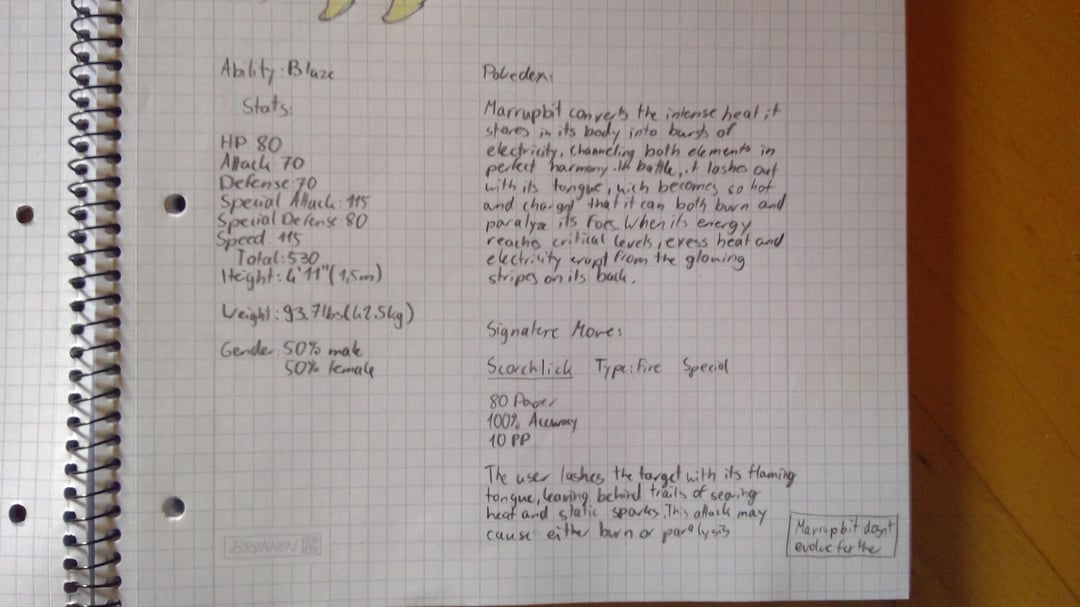 Ability: Blaze
Stats:
HP 80
Attack 70
Defense: 70
Special Attack: 115
Special Defense: 80
Speed 115
Total: 530
Height: 4'11" (1,5m)
Weight: 93.7lbs (42.5kg)
Gender: 50% male
50% female
Pokedex:
Marrupbit converts the intense heat it
stores in its body into bursts of
electricity, channeling both elements in
perfect harmony. In battle, it lashes out
with its tongue, wich becomes so hot
and charged that it can both burn and
paralyze its foes. When its energy
reaches critical levels, exess heat and
electricity erupt from the glowing
stripes on its back.
Signature Move:
Scorchlick Type: Fire Special
80 Power
100% Accuracy
10 PP
The user lashes the target with its flaming
tongue, leaving behind trails of searing
heat and static sparks. This attack may
cause either burn or paralysis
Marrupbit doesn't
evolve further
BRUNNEN